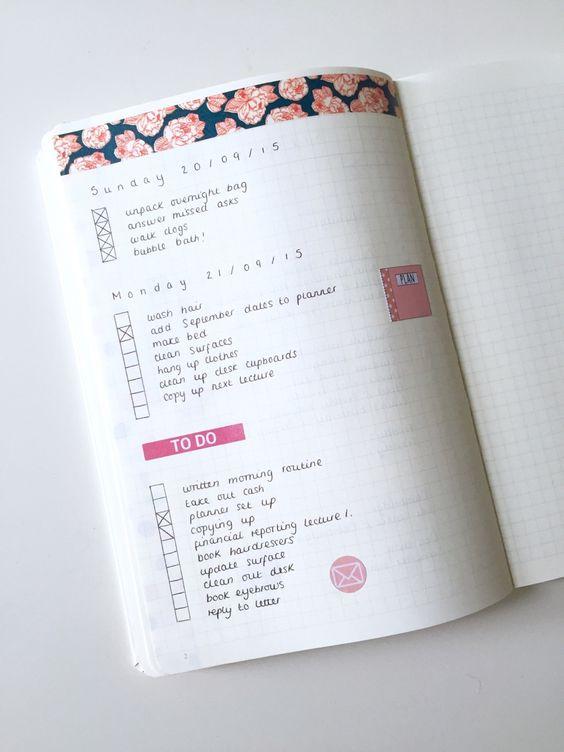 Sunday 20/09/15
unpack overnight bag
answer missed asks
walk dogs
bubble bath!
Monday 21/09/15
wash hair
add September dates to planner
make bed
clean surfaces
hang up clothes
clean up desk cupboards
copy up next lecture
PLAN
TO DO
written morning routine
take out cash
planner set up
copying up
financial reporting lecture 1.
book hairdressers
update surface
clean out desk
book eyebrows
reply to letter
2